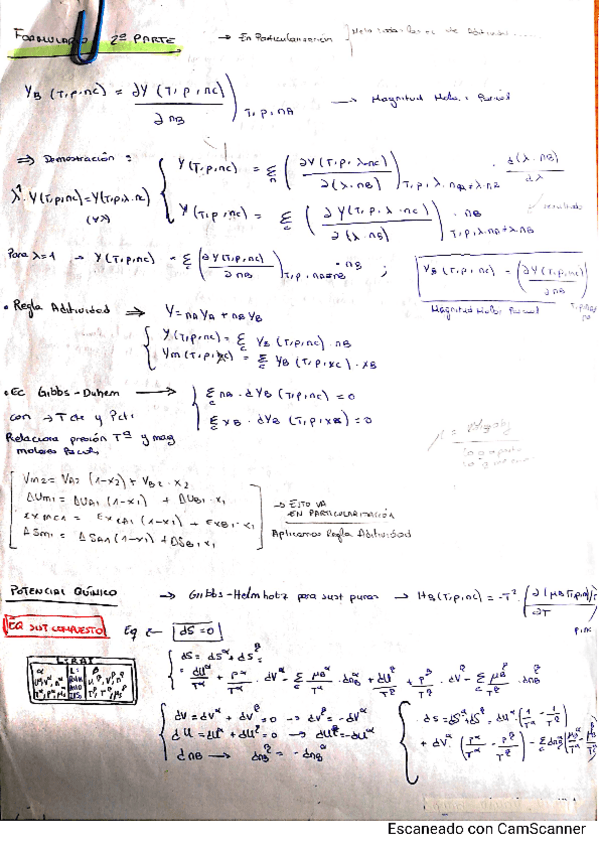 FORMULARIO 2ª PARTE → En Particularización
Y_B (T,p,nc) = ∂Y (T, p, nc) / ∂n_B )_T,p,n_A → Magnitud Molar Parcial
⇒ Demostración:
λ¹·Y(T,p,nc)=Y(T,p,λ·nc)
(∀λ)
Y(T,p,nc) = Σ ( ∂Y(T,p,λ·nc) / ∂(λ·n_B) ) · d(λ·n_B) / dλ
Y(T,p,nc) = Σ_c ( ∂Y(T,p,λ·nc) / ∂(λ·n_B) ) · n_B
Para λ=1 → Y(T,p,nc) = Σ_c ( ∂Y(T,p,nc) / ∂n_B ) · n_B ; Y_B (T,p,nc) = ( ∂Y(T,p,nc) / ∂n_B )
Magnitud Molar Parcial
• Regla Aditividad ⇒ Y = n_A Y_A + n_B Y_B
Y(T,p,nc) = Σ_c Y_B (T,p,nc) · n_B
Ym(T,p,xc) = Σ_c Y_B (T,p,xc) · x_B
• Ec Gibbs-Duhem → Σ_c n_B · dY_B (T,p,nc) = 0
con → T cte y P cte
Σ_c x_B · dY_B (T,p,x_B) = 0
Relaciona presión Tª y mag
molares
Vm2 = V_A2 (1-x2) + V_B2 · x2
ΔUm1 = ΔU_A1 (1-x1) + ΔU_B1 · x1
→ ESTO VA
EN PARTICULARIZACIÓN
ΔSm1 = ΔS_A1 (1-x1) + ΔS_B1 · x1
Aplicamos Regla Aditividad
POTENCIAL QUÍMICO → Gibbs-Helmholtz para sust puras → H_B(T,p,nc) = -T² · ( ∂(μ_B(T,p,n)/T) / ∂T )
p,nc
EQ SIST COMPUESTO Eq ← dS=0
dS = dS^α + dS^β =
= dU^α/T^α + P^α/T^α · dV^α - Σ_c μ_B^α/T^α · dn_B^α + dU^β/T^β + P^β/T^β · dV^β - Σ_c μ_B^β/T^β · dn_B^β
dV = dV^α + dV^β = 0 → dV^β = -dV^α
dU = dU^α + dU^β = 0 → dU^β = -dU^α
dn_B → dn_B^β = -dn_B^α
dS = dS^α + dS^β = dU^α · (1/T^α - 1/T^β)
+ dV^α · (P^α/T^α - P^β/T^β) - Σ_c dn_B^α (μ_B^α/T^α - μ_B^β/T^β)
Escaneado con CamScanner